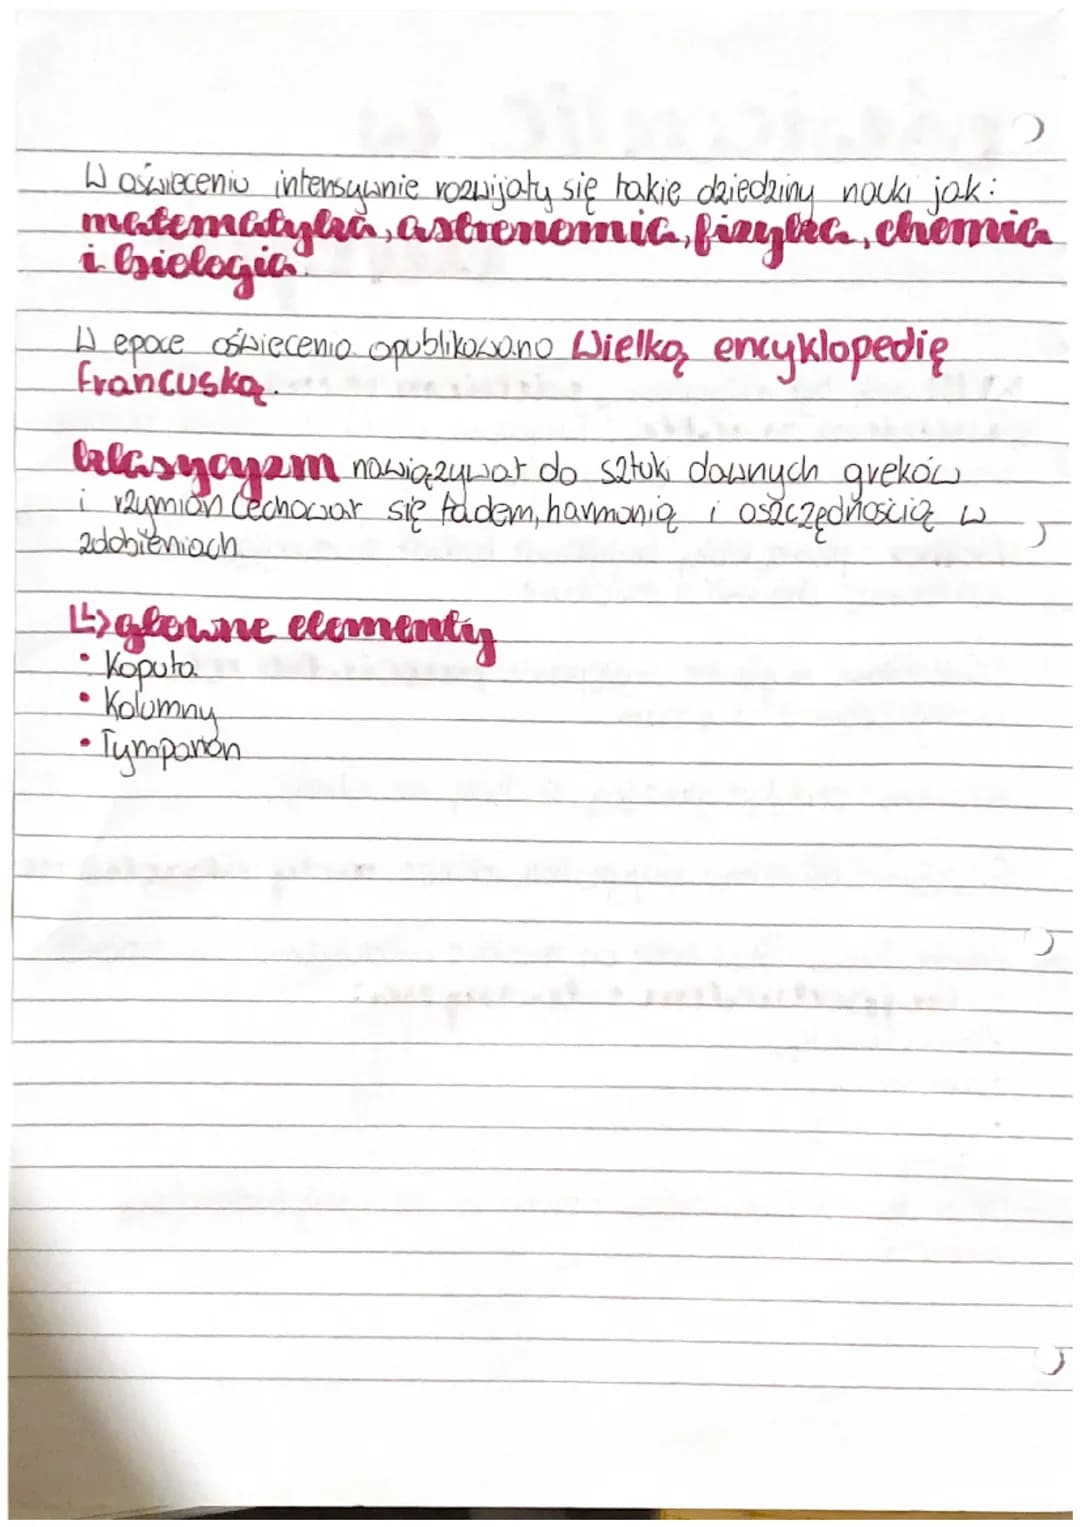 W oświeceniu intensywnie rozwijały się takie dziedziny nauki jak:
matematyka, astronomia, fizyka, chemia
i biologia.
W epoce oświecenia opublikowano Wielką encyklopedię
francuską.
klasycyzm nawiązywał do sztuki dawnych greków
i rzymian cechował się ładem, harmonią i oszczędnością w
zdobieniach
↳ głowne elementy
• Kopuła
• Kolumny
• Tympanon